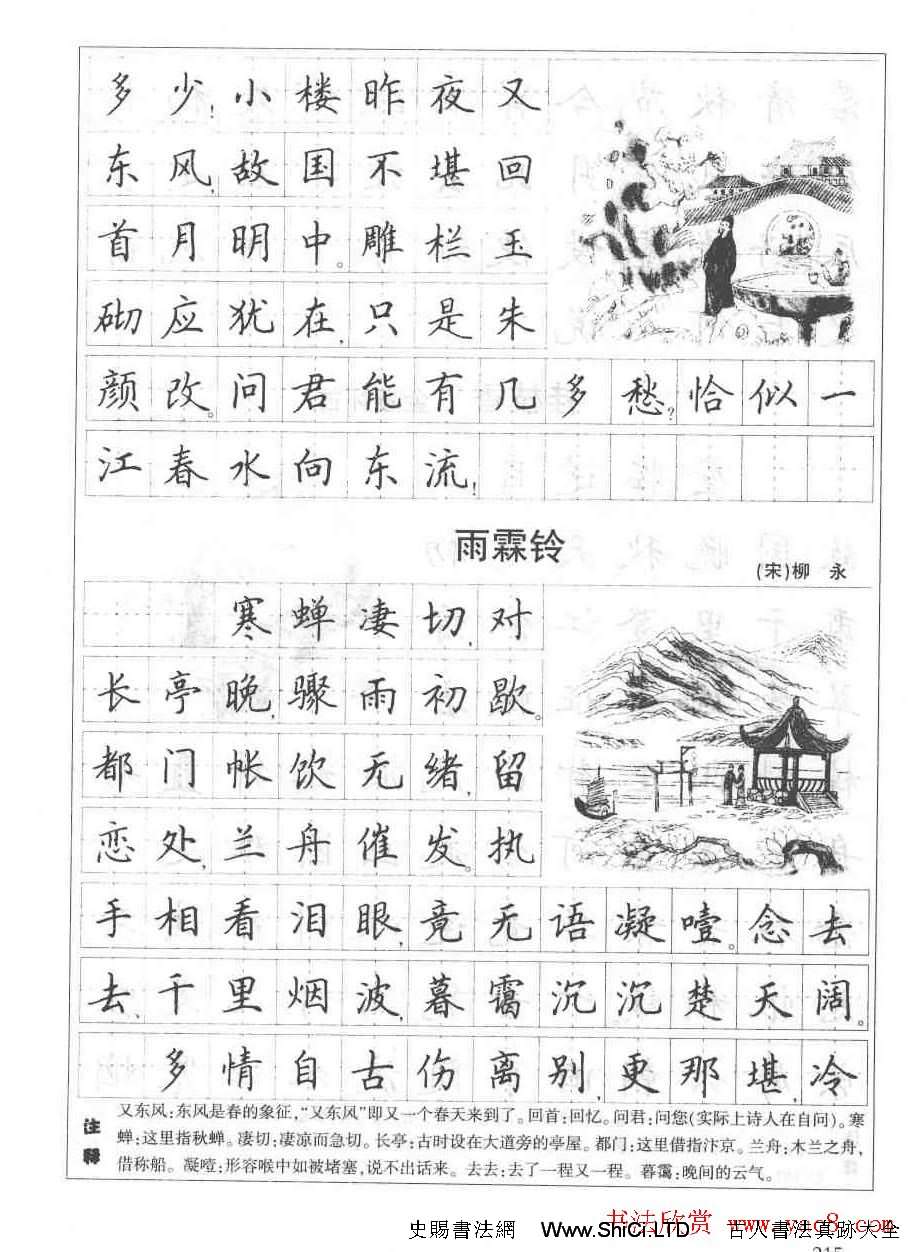 多少!小楼昨夜又
东风,故国不堪回
首月明中。雕栏玉
砌应犹在,只是朱
颜改。问君能有几多愁?恰似一
江春水向东流!
雨霖铃
(宋)柳 永
寒蝉凄切,对
长亭晚,骤雨初歇。
都门帐饮无绪,留
恋处,兰舟催发。执
手相看泪眼,竟无语凝噎。念去
去、千里烟波,暮霭沉沉楚天阔。
多情自古伤离别,更那堪,冷
注释
又东风:东风是春的象征,“又东风”即又一个春天来到了。回首:回忆。问君:问您(实际上诗人在自问)。寒
蝉:这里指秋蝉。凄切:凄凉而急切。长亭:古时设在大道旁的亭屋。都门:这里借指汴京。兰舟:木兰之舟,
借称船。凝噎:形容喉中如被堵塞,说不出话来。去去:去了一程又一程。暮霭:晚间的云气。
书法欣赏
史賜書法網 Www.ShiCi.LTD 古人書法真跡大全